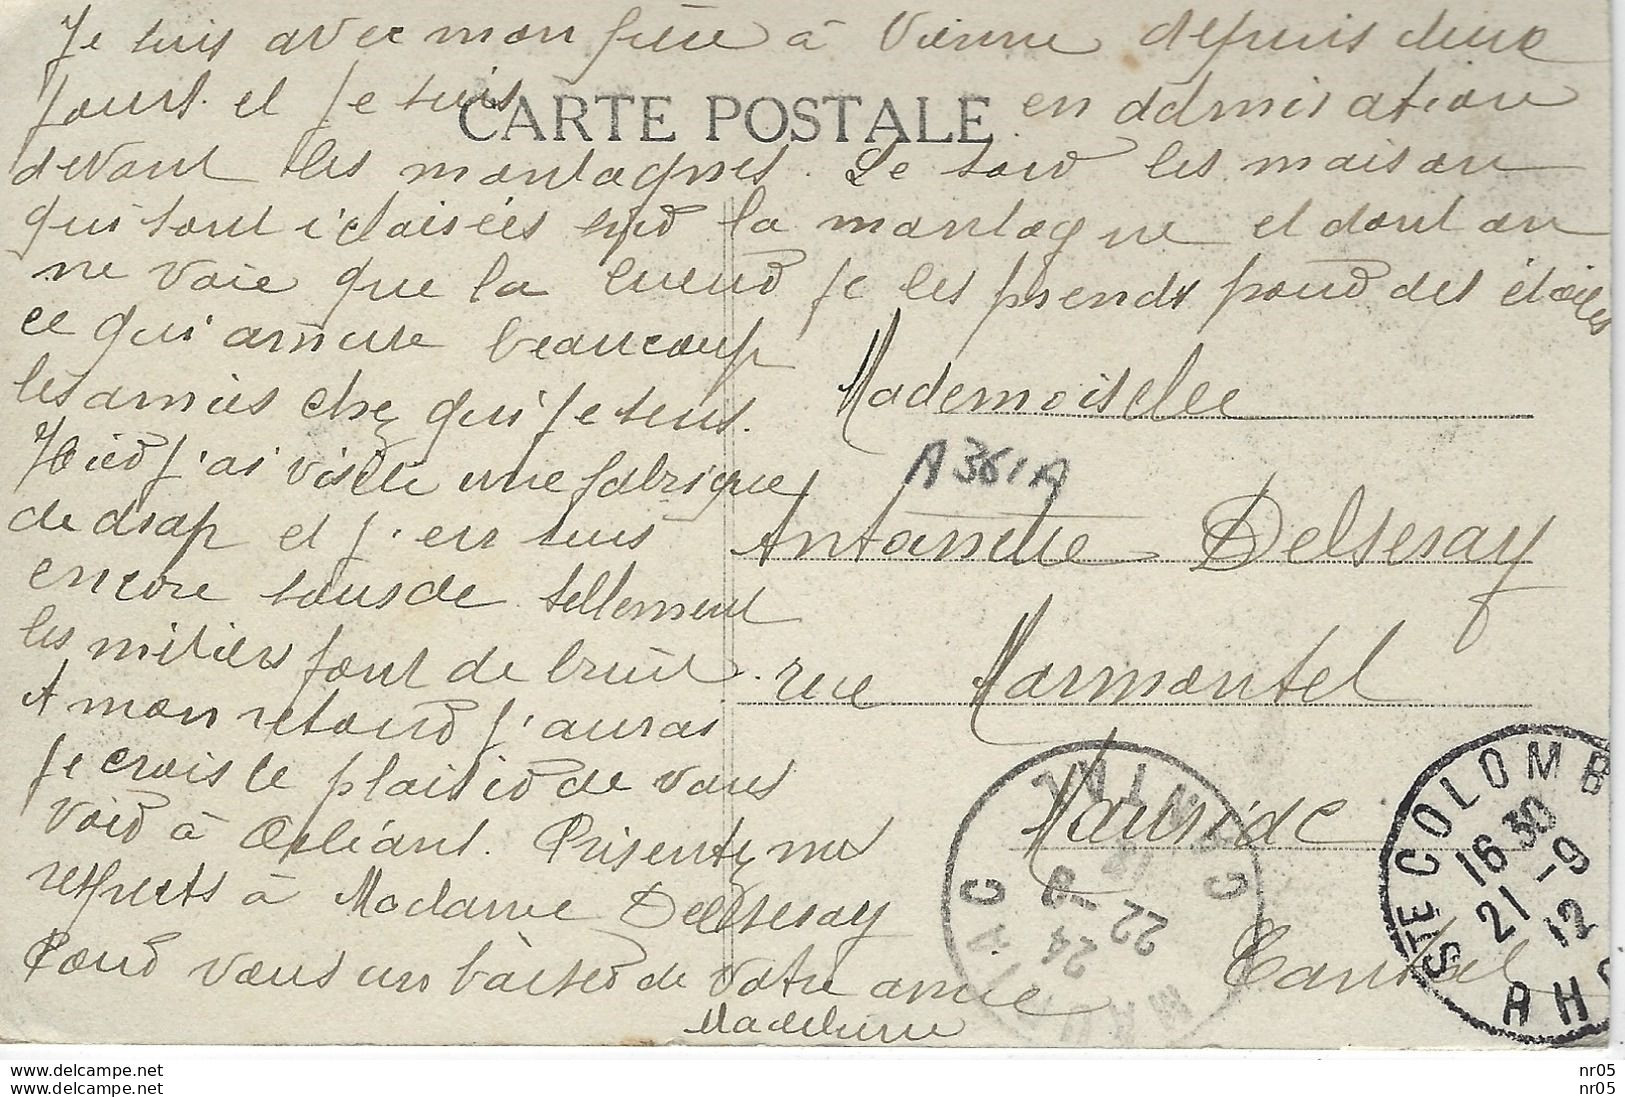 Je suis avec mon frère à Vienne depuis deux
jours et je suis en admiration
CARTE POSTALE
devant les montagnes. Le soir les maison
qui sont éclairées sur la montagne et dont on
ne voie que la lueur je les prends pour des étoiles
ce qui amuse beaucoup
les amies chez qui je suis.
Hier j'ai visité une fabrique
de drap et j'en suis
encore sourde tellement
les métiers font de bruit.
A mon retour j'aurai
je crois le plaisir de vous
voir à Orléans. Présentez mes
respects à Madame Delseray
Pour vous un baiser de votre amie
Madeleine
Mademoiselle
A361A
Antoinette Delseray
rue Marmontel
Mauriac
Cantal
MAURIAC CANTAL
24
22-9
12
STE COLOMB
16 30
21-9
12
RHO
nr05
nr05